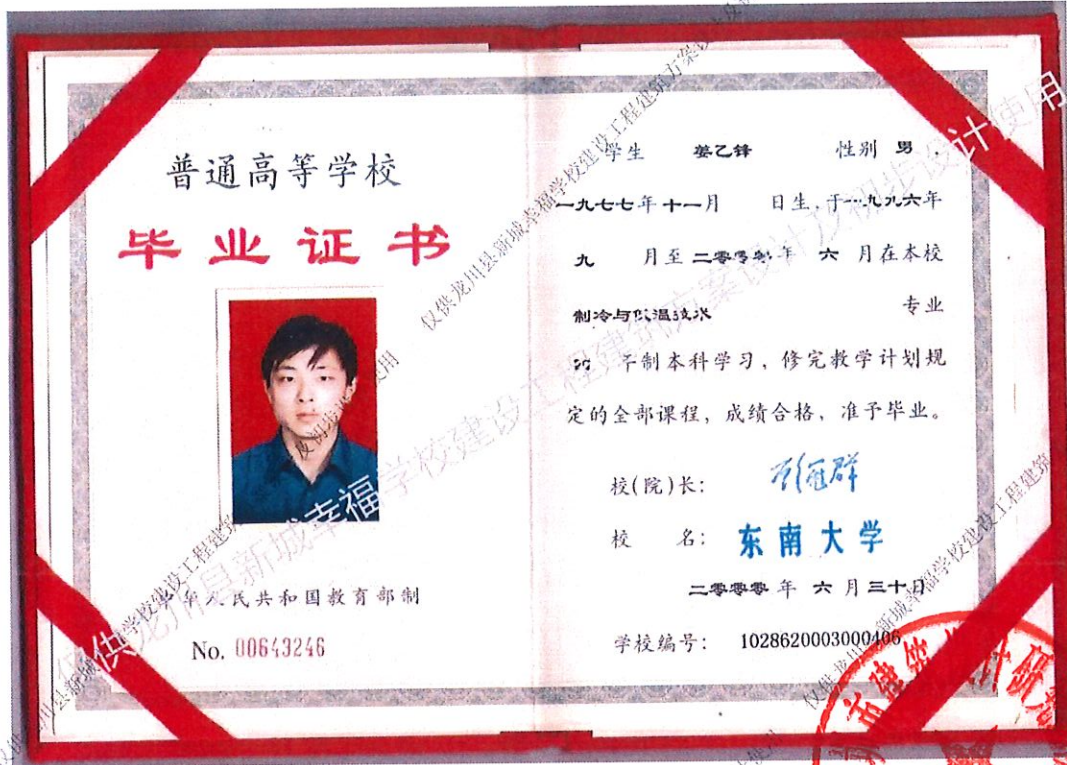 普通高等学校
毕业证书
中华人民共和国教育部制
No. 00643246
学生 姜乙锋 性别 男
一九七七年十一月 日生,于一九九六年
九 月至二零零零年 六 月在本校
制冷与低温技术 专业
制本科学习,修完教学计划规
定的全部课程,成绩合格,准予毕业。
校(院)长:
校 名: 东南大学
二零零零 年 六 月三十日
学校编号: 1028620003000406
仅供龙川县新城幸福学校建设工程建筑方案设计及初步设计使用